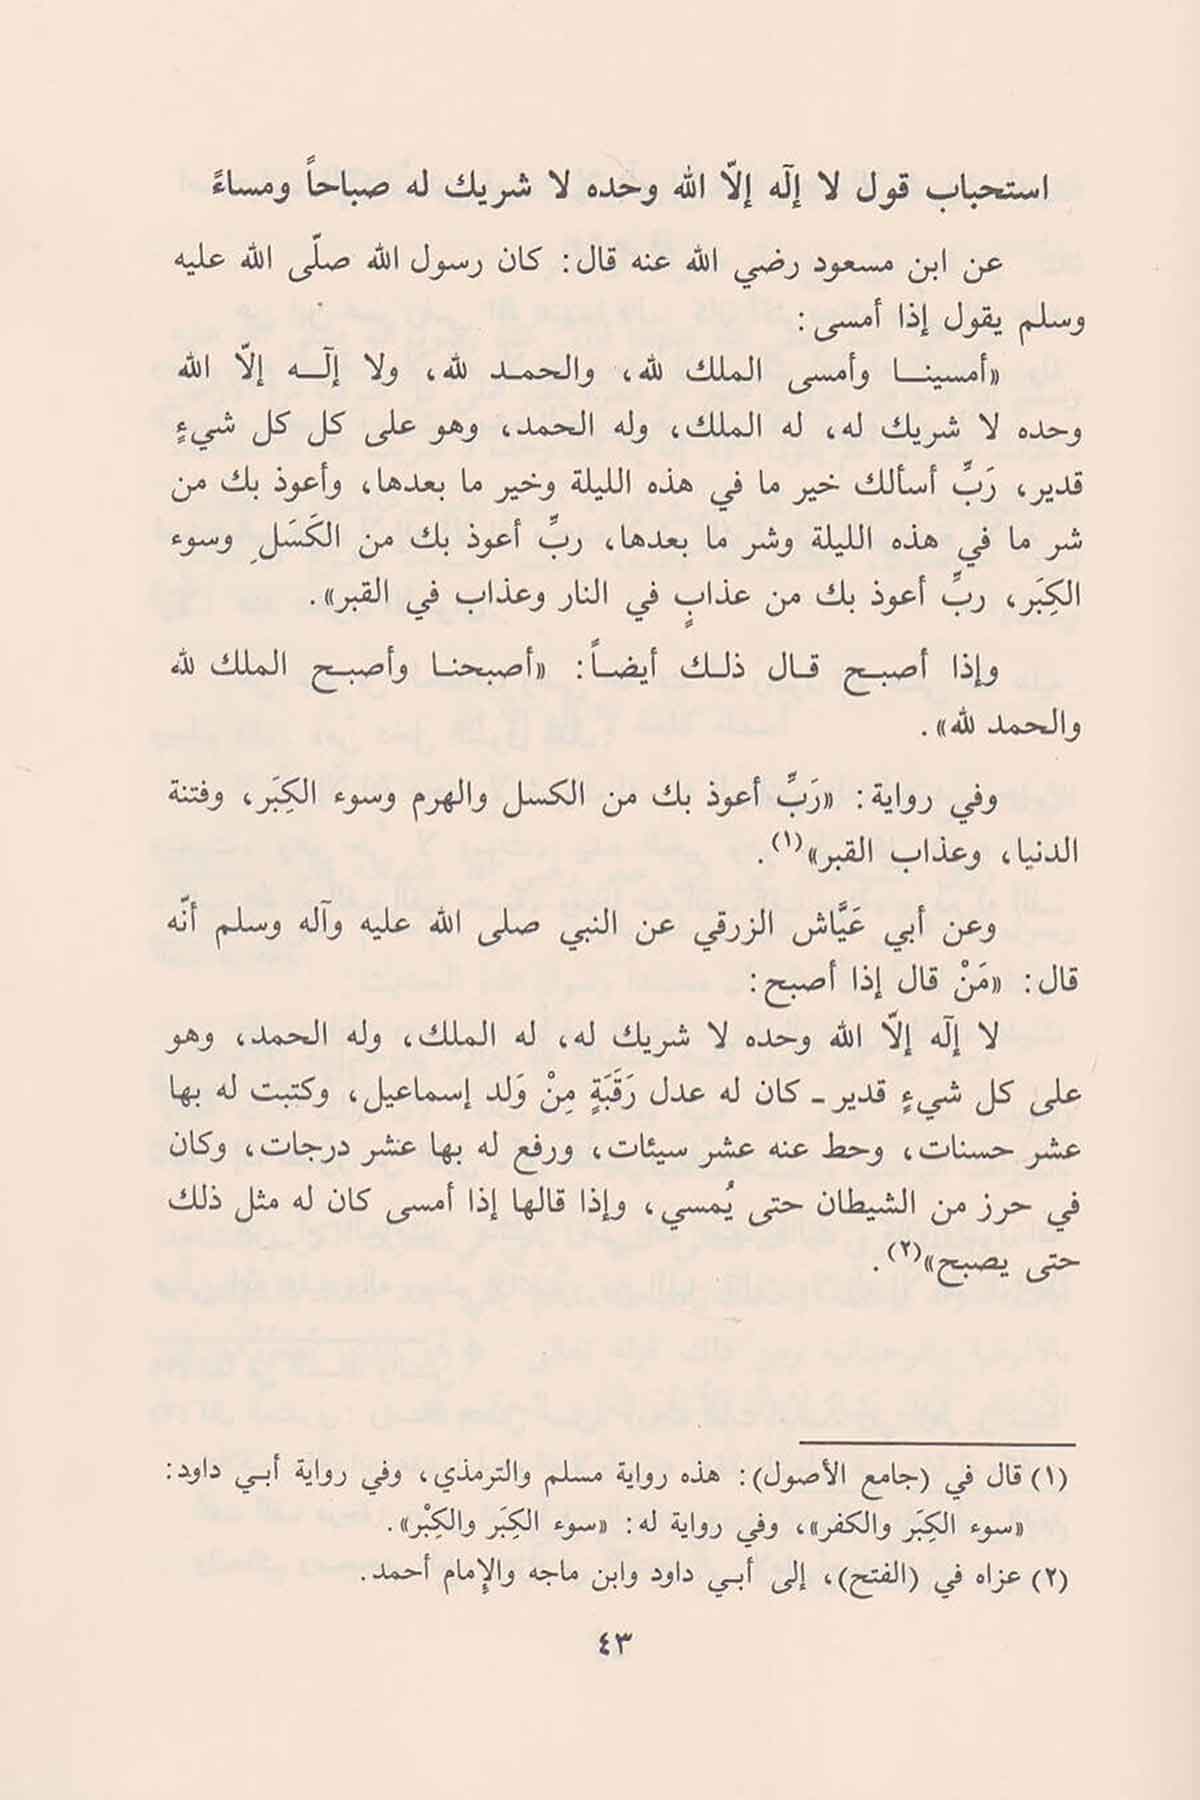 استحباب قول لا إلٓه إلاّ الله وحده لا شريك له صباحاً ومساءً
عن ابن مسعود رضي الله عنه قال: كان رسول الله صلّى الله عليه
وسلم يقول إذا أمسى:
«أمسينا وأمسى الملك لله، والحمد لله، ولا إلٓه إلاّ الله
وحده لا شريك له، له الملك، وله الحمد، وهو على كل كل شيءٍ
قدير، رَبِّ أسألك خير ما في هذه الليلة وخير ما بعدها، وأعوذ بك من
شر ما في هذه الليلة وشر ما بعدها، ربِّ أعوذ بك من الكَسَلِ وسوء
الكِبَر، ربِّ أعوذ بك من عذابٍ في النار وعذاب في القبر».
وإذا أصبح قال ذلك أيضاً: «أصبحنا وأصبح الملك لله
والحمد لله».
وفي رواية: «رَبِّ أعوذ بك من الكسل والهرم وسوء الكِبَر، وفتنة
الدنيا، وعذاب القبر»(١).
وعن أبي عَيَّاش الزرقي عن النبي صلى الله عليه وآله وسلم أنّه
قال: «مَنْ قال إذا أصبح:
لا إلٓه إلاّ الله وحده لا شريك له، له الملك، وله الحمد، وهو
على كل شيءٍ قدير ـ كان له عدل رَقَبَةٍ مِنْ وَلد إسماعيل، وكتبت له بها
عشر حسنات، وحط عنه عشر سيئات، ورفع له بها عشر درجات، وكان
في حرز من الشيطان حتى يُمسي، وإذا قالها إذا أمسى كان له مثل ذلك
حتى يصبح»(٢).
(١) قال في (جامع الأصول): هذه رواية مسلم والترمذي، وفي رواية أبي داود:
«سوء الكِبَر والكفر»، وفي رواية له: «سوء الكِبَر والكِبْر».
(٢) عزاه في (الفتح)، إلى أبي داود وابن ماجه والإمام أحمد.
٤٣